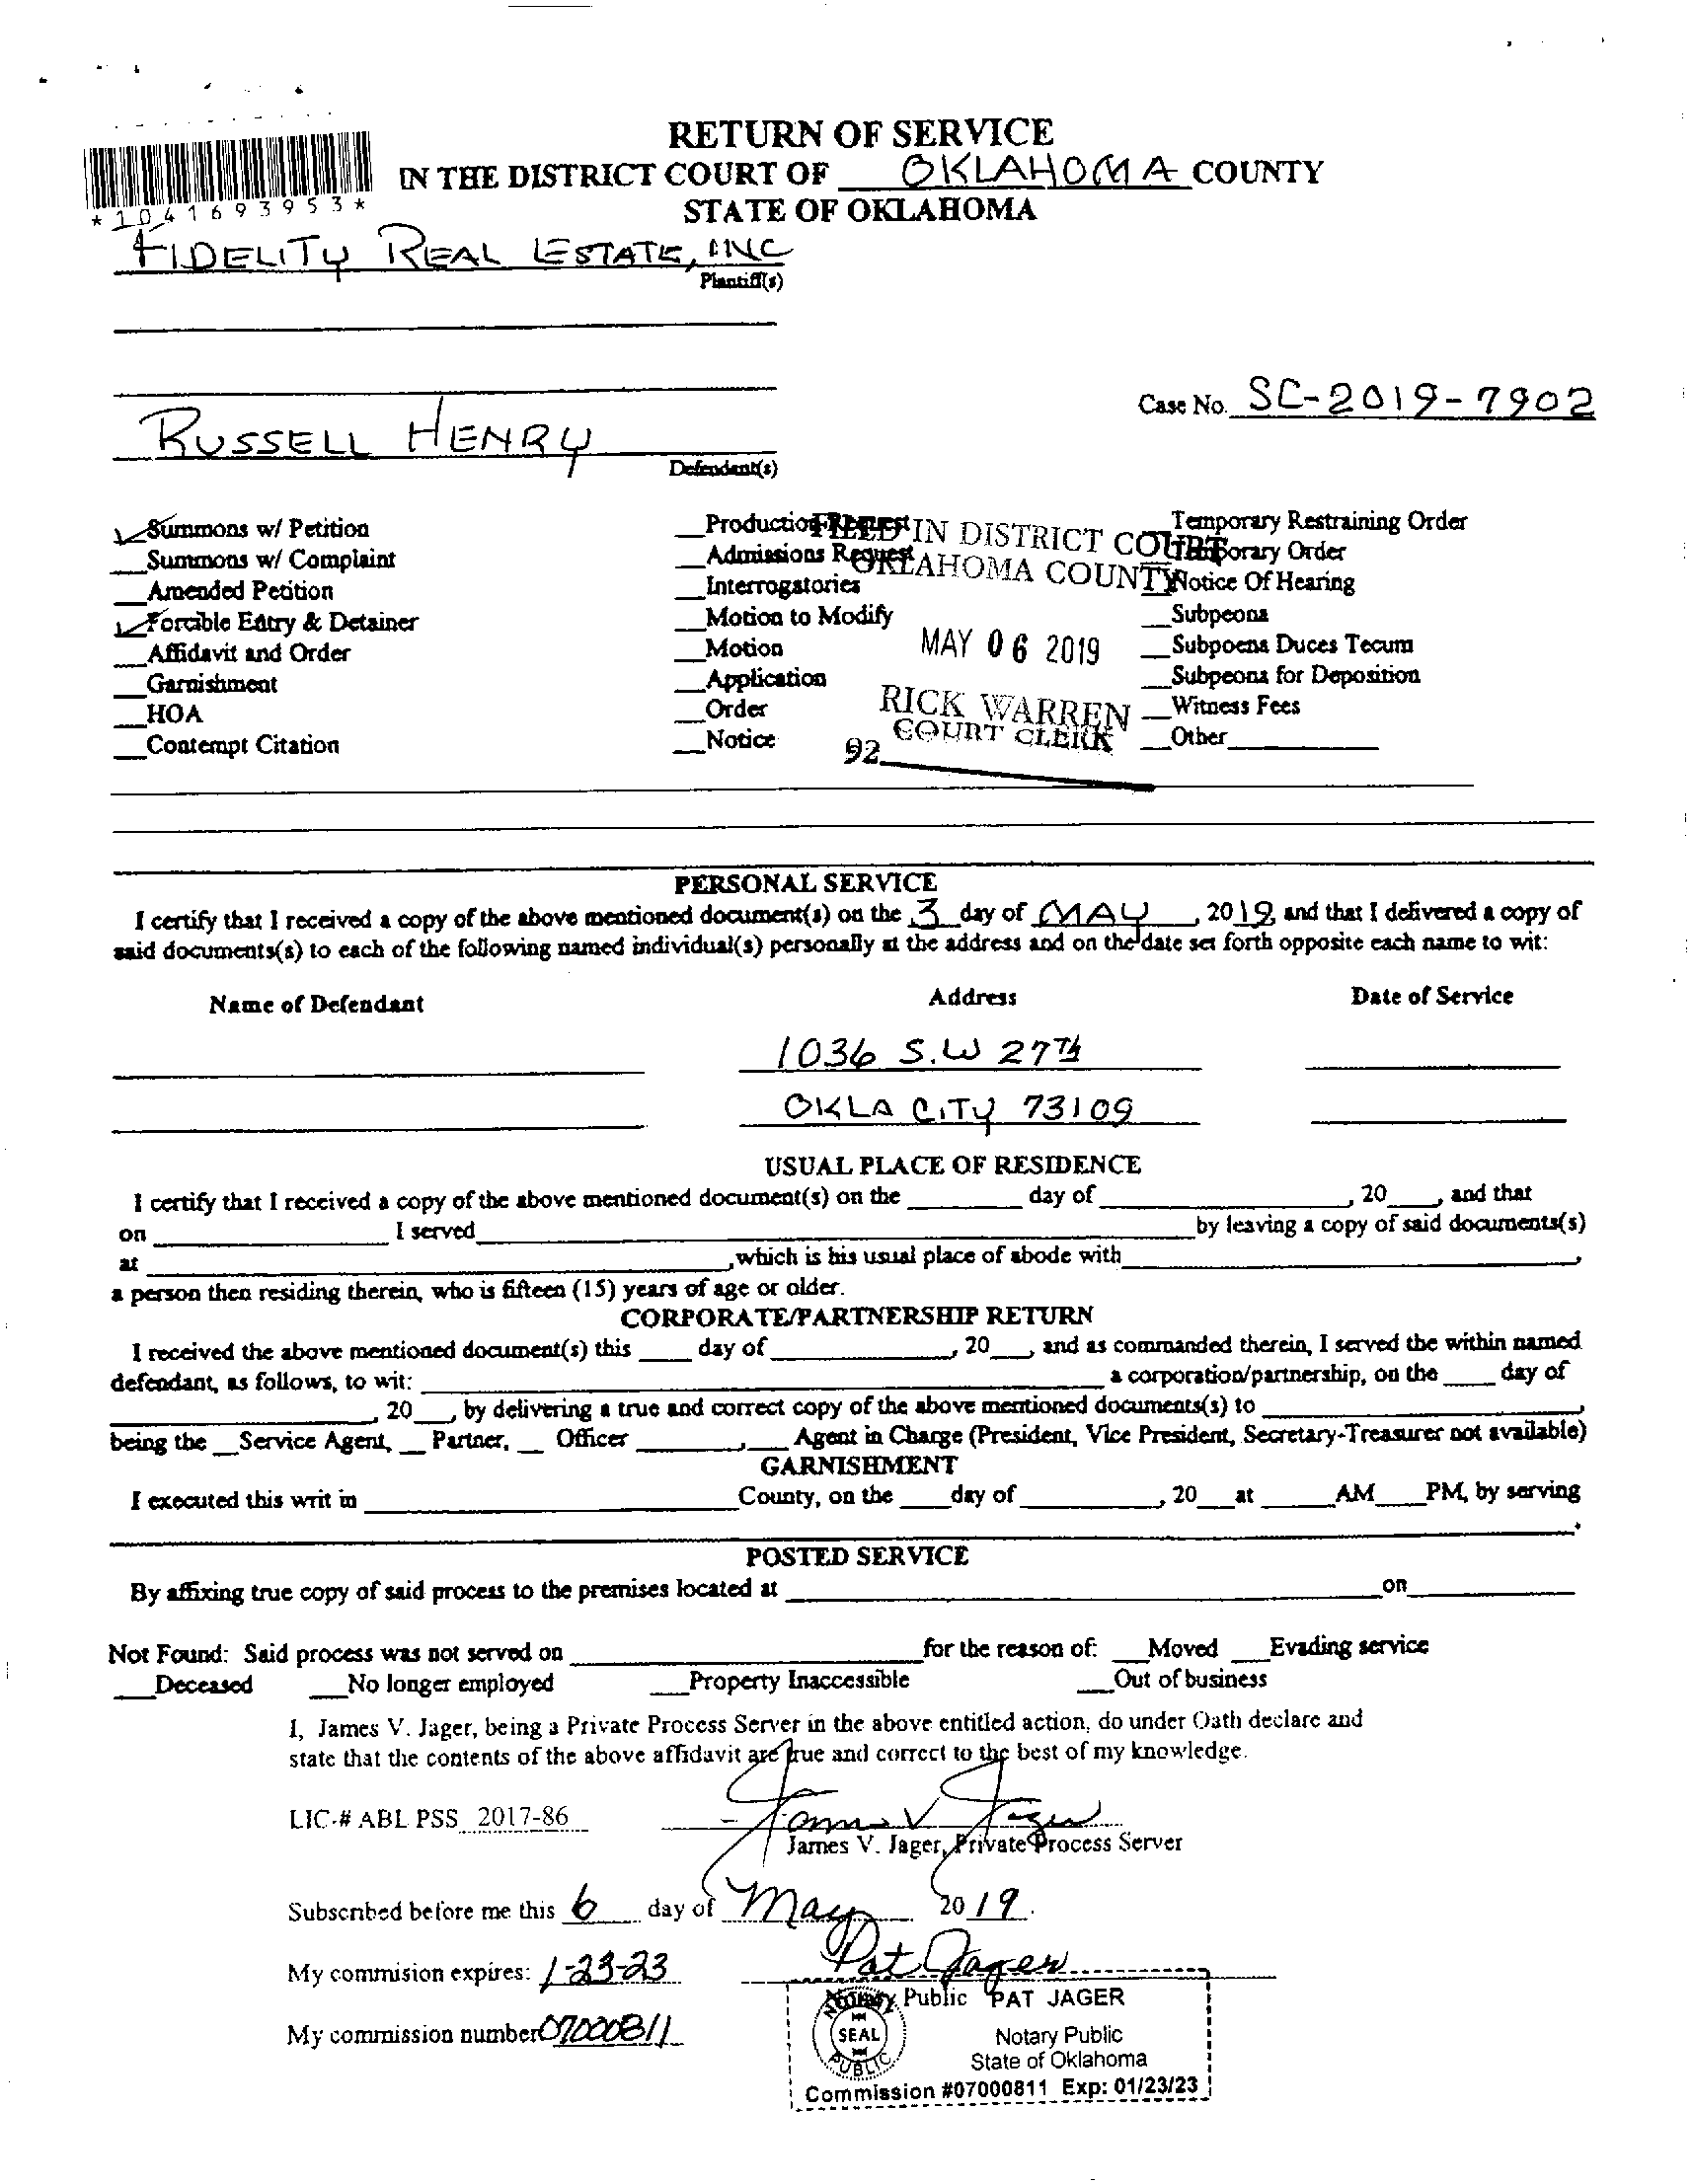 RETURN OF SERVICE
IN THE DISTRICT COURT OF OKLAHOMA COUNTY
STATE OF OKLAHOMA
*1041693953*
FIDELITY REAL ESTATE, INC
Plantiff(s)
Case No. SC-2019-7902
RUSSELL HENRY
Defendant(s)
Summons w/ Petition
__Summons w/ Complaint
__Amended Petition
Forcible Entry & Detainer
__Affidavit and Order
__Garnishment
__HOA
__Contempt Citation
__Production Request
__Admissions Request
__Interrogatories
__Motion to Modify
__Motion
__Application
__Order
__Notice
FILED IN DISTRICT COURT
OKLAHOMA COUNTY
MAY 06 2019
RICK WARREN
COURT CLERK
92
__Temporary Restraining Order
__Temporary Order
__Notice Of Hearing
__Subpeona
__Subpoena Duces Tecum
__Subpeona for Deposition
__Witness Fees
__Other
PERSONAL SERVICE
I certify that I received a copy of the above mentioned document(s) on the 3 day of MAY, 2019, and that I delivered a copy of
said documents(s) to each of the following named individual(s) personally at the address and on the date set forth opposite each name to wit:
Name of Defendant Address Date of Service
1036 S.W 27TH
OKLA CITY 73109
USUAL PLACE OF RESIDENCE
I certify that I received a copy of the above mentioned document(s) on the ____ day of ____, 20__, and that
on ____ I served ____ by leaving a copy of said documents(s)
at ____, which is his usual place of abode with ____,
a person then residing therein, who is fifteen (15) years of age or older.
CORPORATE/PARTNERSHIP RETURN
I received the above mentioned document(s) this ____ day of ____, 20__, and as commanded therein, I served the within named
defendant, as follows, to wit: ____ a corporation/partnership, on the ____ day of
____, 20__, by delivering a true and correct copy of the above mentioned documents(s) to ____,
being the __Service Agent, __ Partner, __ Officer ____, __ Agent in Charge (President, Vice President, Secretary-Treasurer not available)
GARNISHMENT
I executed this writ in ____ County, on the ____ day of ____, 20__ at ____ AM ____ PM, by serving
____.
POSTED SERVICE
By affixing true copy of said process to the premises located at ____ on ____
Not Found: Said process was not served on ____ for the reason of: __Moved __Evading service
__Deceased __No longer employed __Property Inaccessible __Out of business
I, James V. Jager, being a Private Process Server in the above entitled action, do under Oath declare and
state that the contents of the above affidavit are true and correct to the best of my knowledge.
LIC-# ABL PSS 2017-86
James V Jager
James V. Jager, Private Process Server
Subscribed before me this 6 day of May 2019.
My commision expires: 1-23-23
Pat Jager
Notary Public
My commission number 07000811
NOTARY
SEAL
PUBLIC
PAT JAGER
Notary Public
State of Oklahoma
Commission #07000811 Exp: 01/23/23